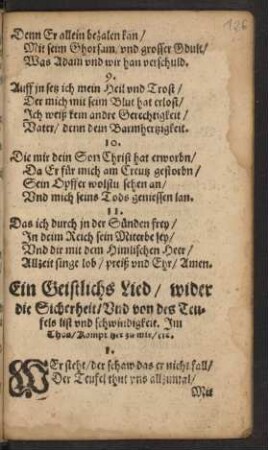 126
Denn Er allein bezalen kan/
Mit seim Ghorsam/ vnd grosser Gdult/
Was Adam vnd wir han verschuld.
9.
Auff jn setz ich mein Heil vnd Trost/
Der mich mit seim Blut hat erlost/
Ich weiß kein andre Gerechtigkeit/
Vater/ denn dein Barmhertzigkeit.
10.
Die mir dein Son Christ hat erworbn/
Da Er für mich am Creutz gestorbn/
Sein Opffer wolstu sehen an/
Vnd mich seins Tods geniessen lan.
11.
Das ich durch jn der Sünden frey/
In deim Reich sein Miterbe sey/
Vnd dir mit dem Himlischen Heer/
Allzeit singe lob/ preiß vnd Ehr/ Amen.
Ein Geistlichs Lied/ wider
die Sicherheit/ Vnd von des Teu-
fels list vnd schwindigkeit. Im
Thon/ Kompt her zu mir/ etc.
1.
WEr steht/ der schaw das er nicht fall/
Der Teufel thut vns allzumal/
Mit